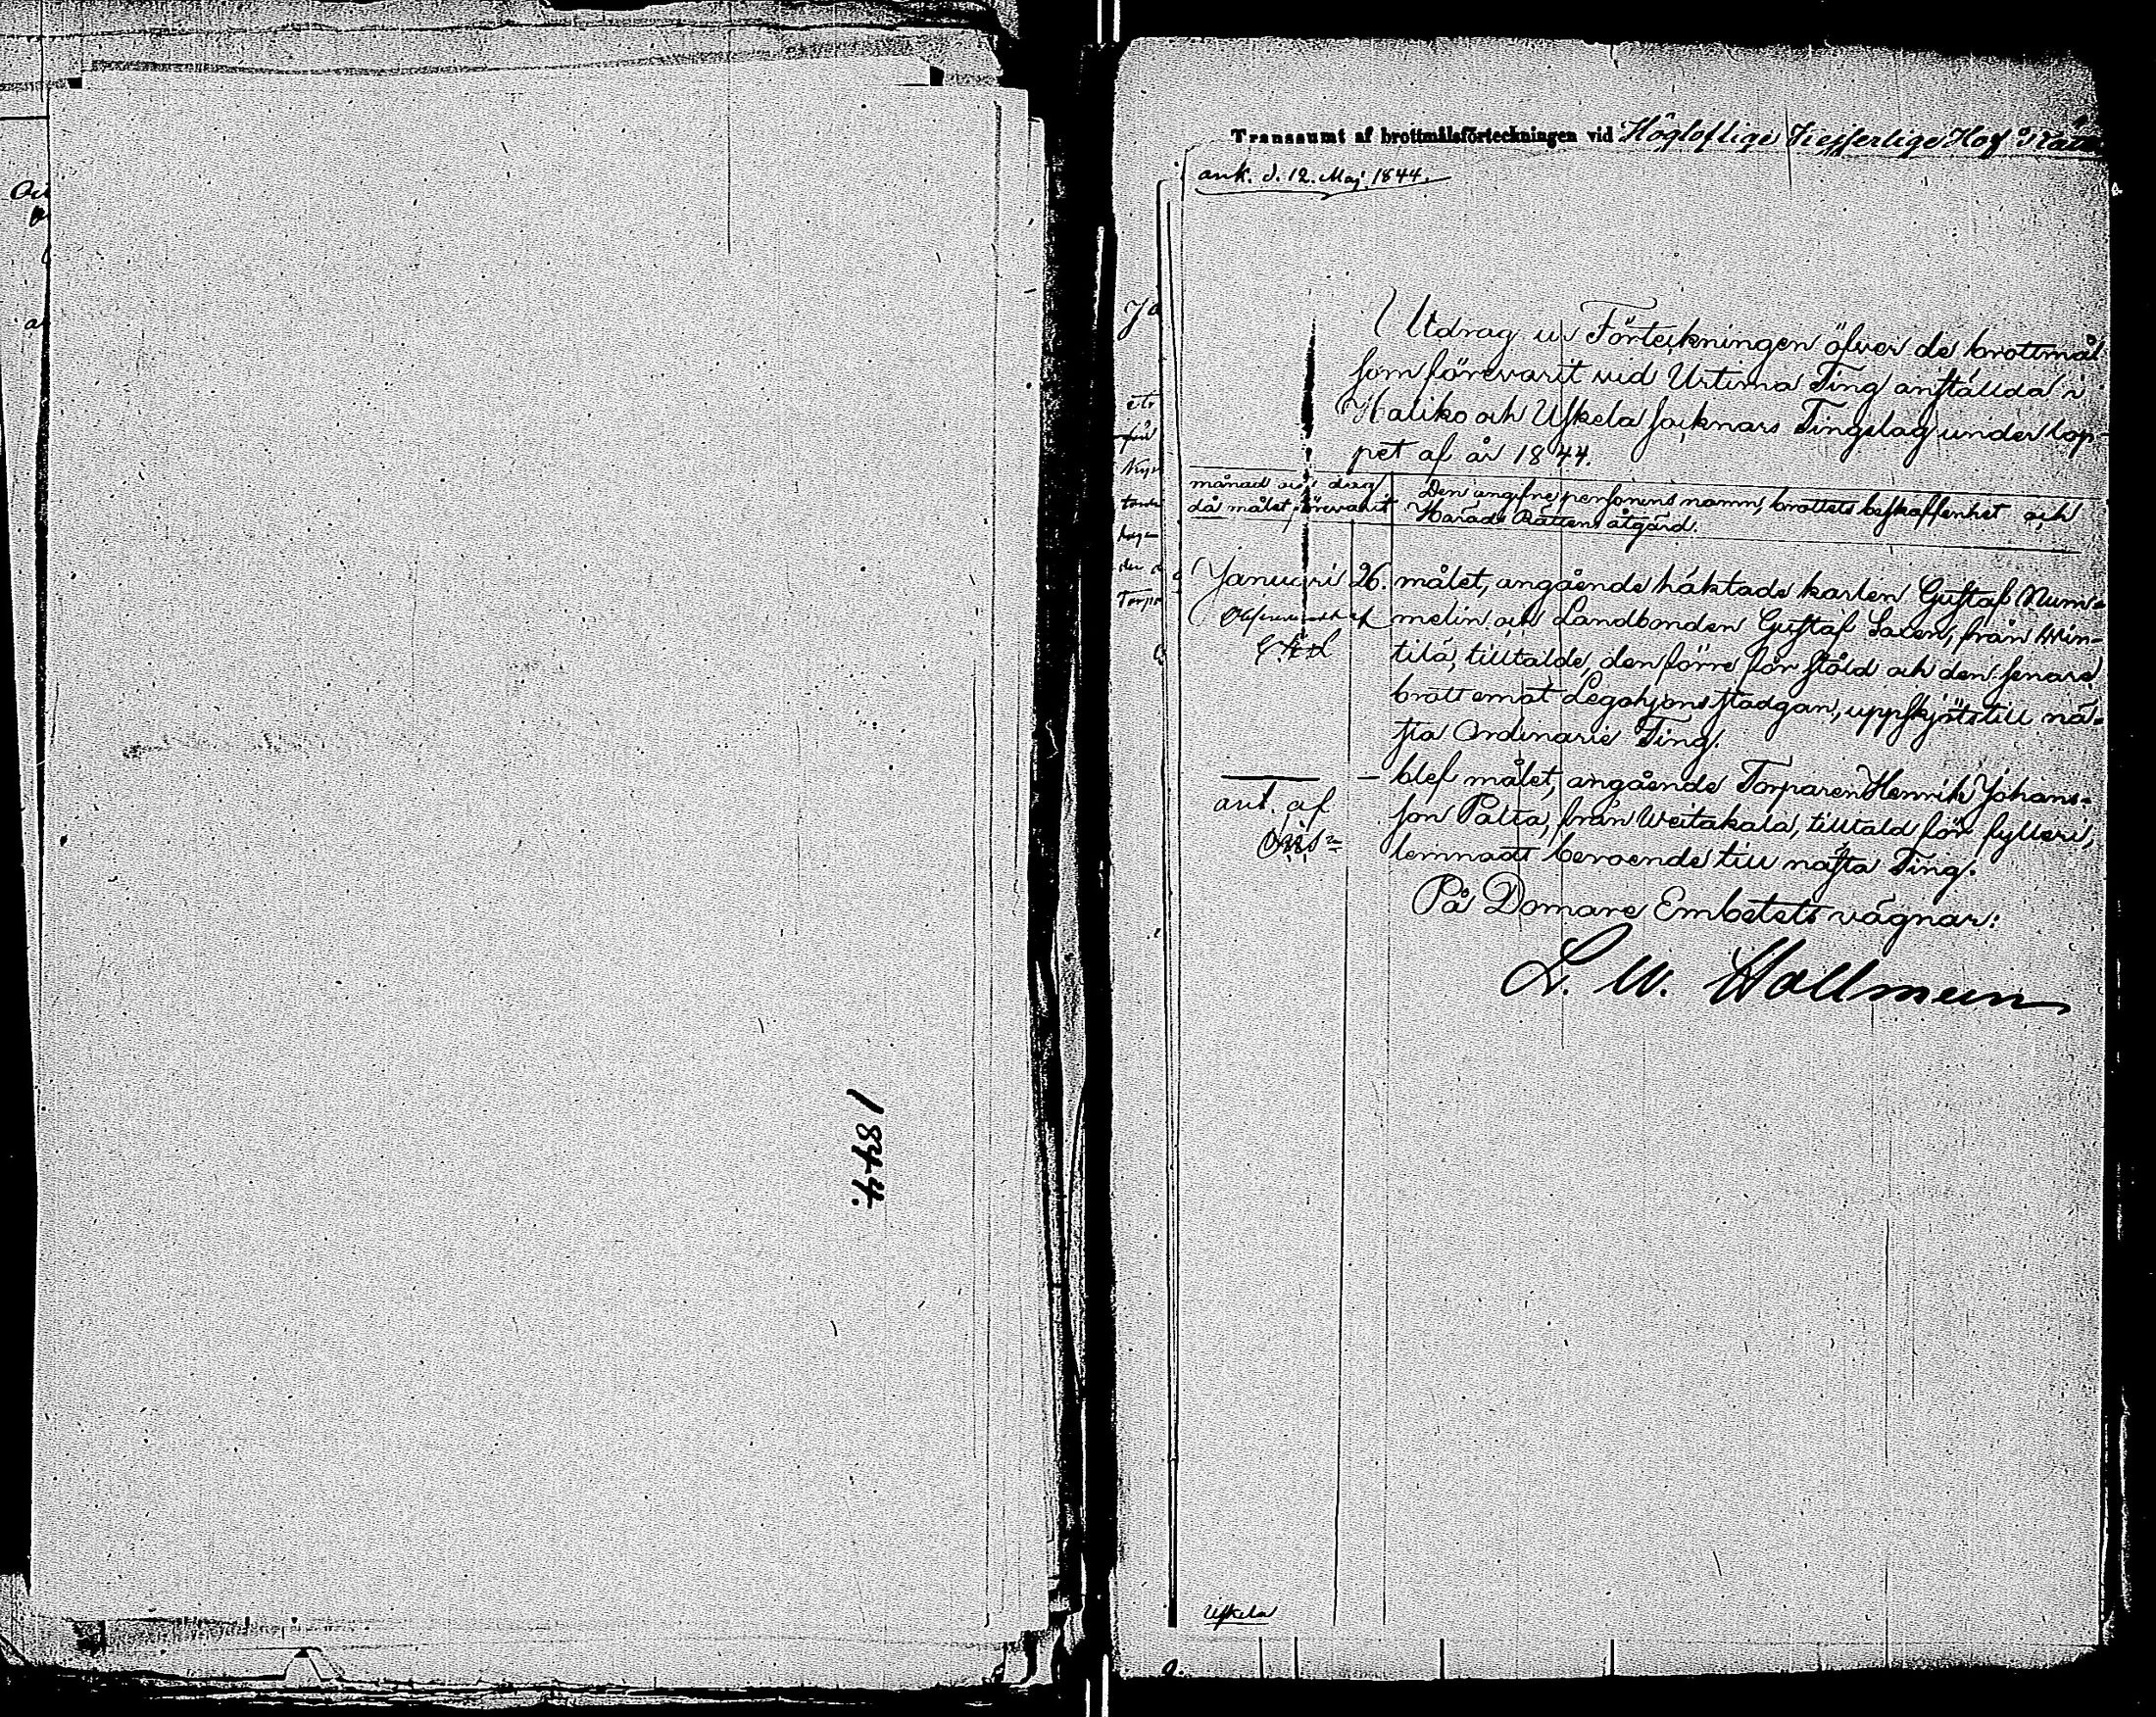 1844.
Transsumt af brottmålsförteckningen vid Högloflige Kejserlige Hof Rätt
ank. d. 12. Maj 1844.
Utdrag ur Förteckningen öfver de brottmål
som förevarit vid Urtima Ting anställda i
Haliko och Uskela socknars Tingslag under lop-
pet af år 1844.
månad och dag
då målet förevarit
Den angifne personens namn, brottets beskaffenhet och
Härads Rättens åtgärd.
Januari 26. målet, angående häktade karlen Gustaf Num-
melin och Landbonden Gustaf Saxen, från Win-
tilä, tilltalde, den förre för stöld och den senare
brott emot Legohjons stadgan, uppskjöts till nä-
sta Ordinarie Ting.
— — blef målet, angående Torparen Henrik Johans-
son Palta, från Weitakala, tilltald för fylleri,
lemnadt beroende till nästa Ting.
ant. af
På Domare Embetets vägnar:
L. W. Hallmeen
Uskela